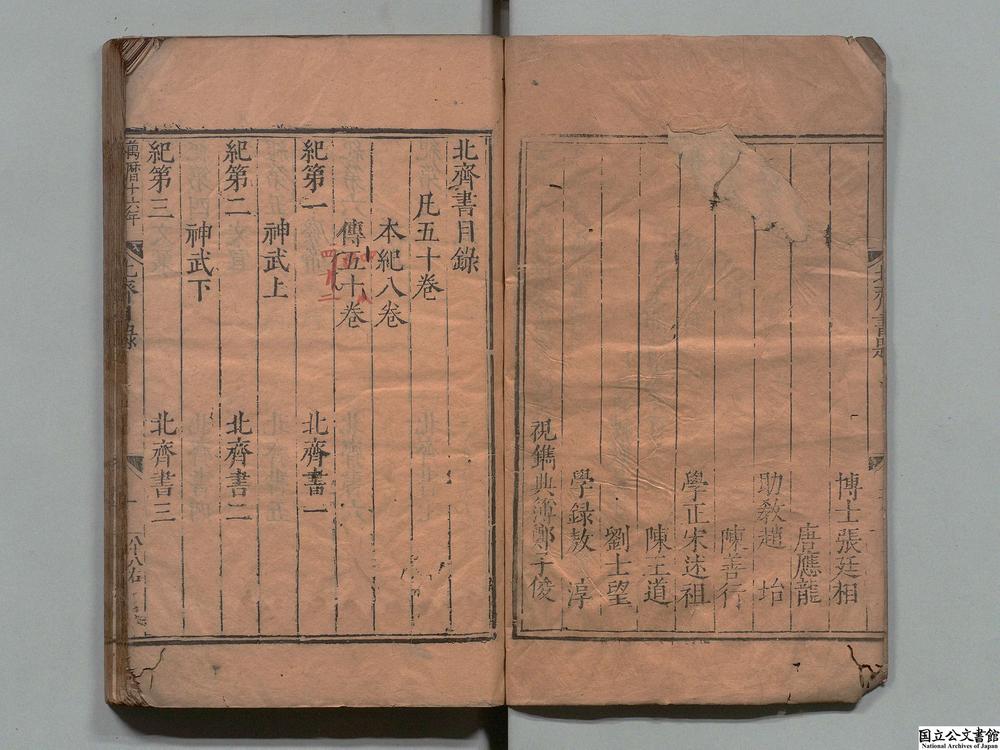 博士張廷相
唐應龍
助教趙 坮
陳善行
學正宋述祖
陳王道
劉士望
學録敖 淳
視鐫典簿鄭子俊
北齊書目錄
凡五十卷
本紀八卷
傳五十卷
四十二
紀第一 北齊書一
神武上
紀第二 北齊書二
神武下
紀第三 北齊書三
萬曆十六年
北齊目錄
国立公文書館
National Archives of Japan